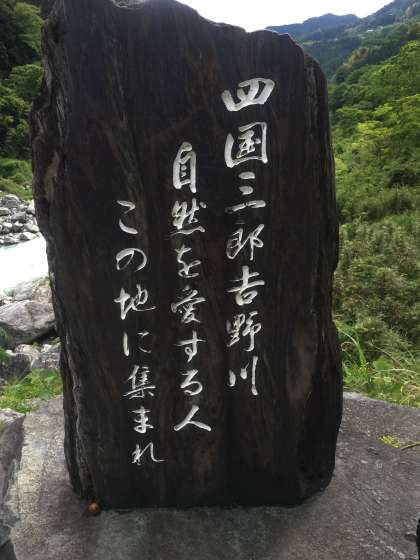 四国三郎吉野川
自然を愛する人
この地に集まれ